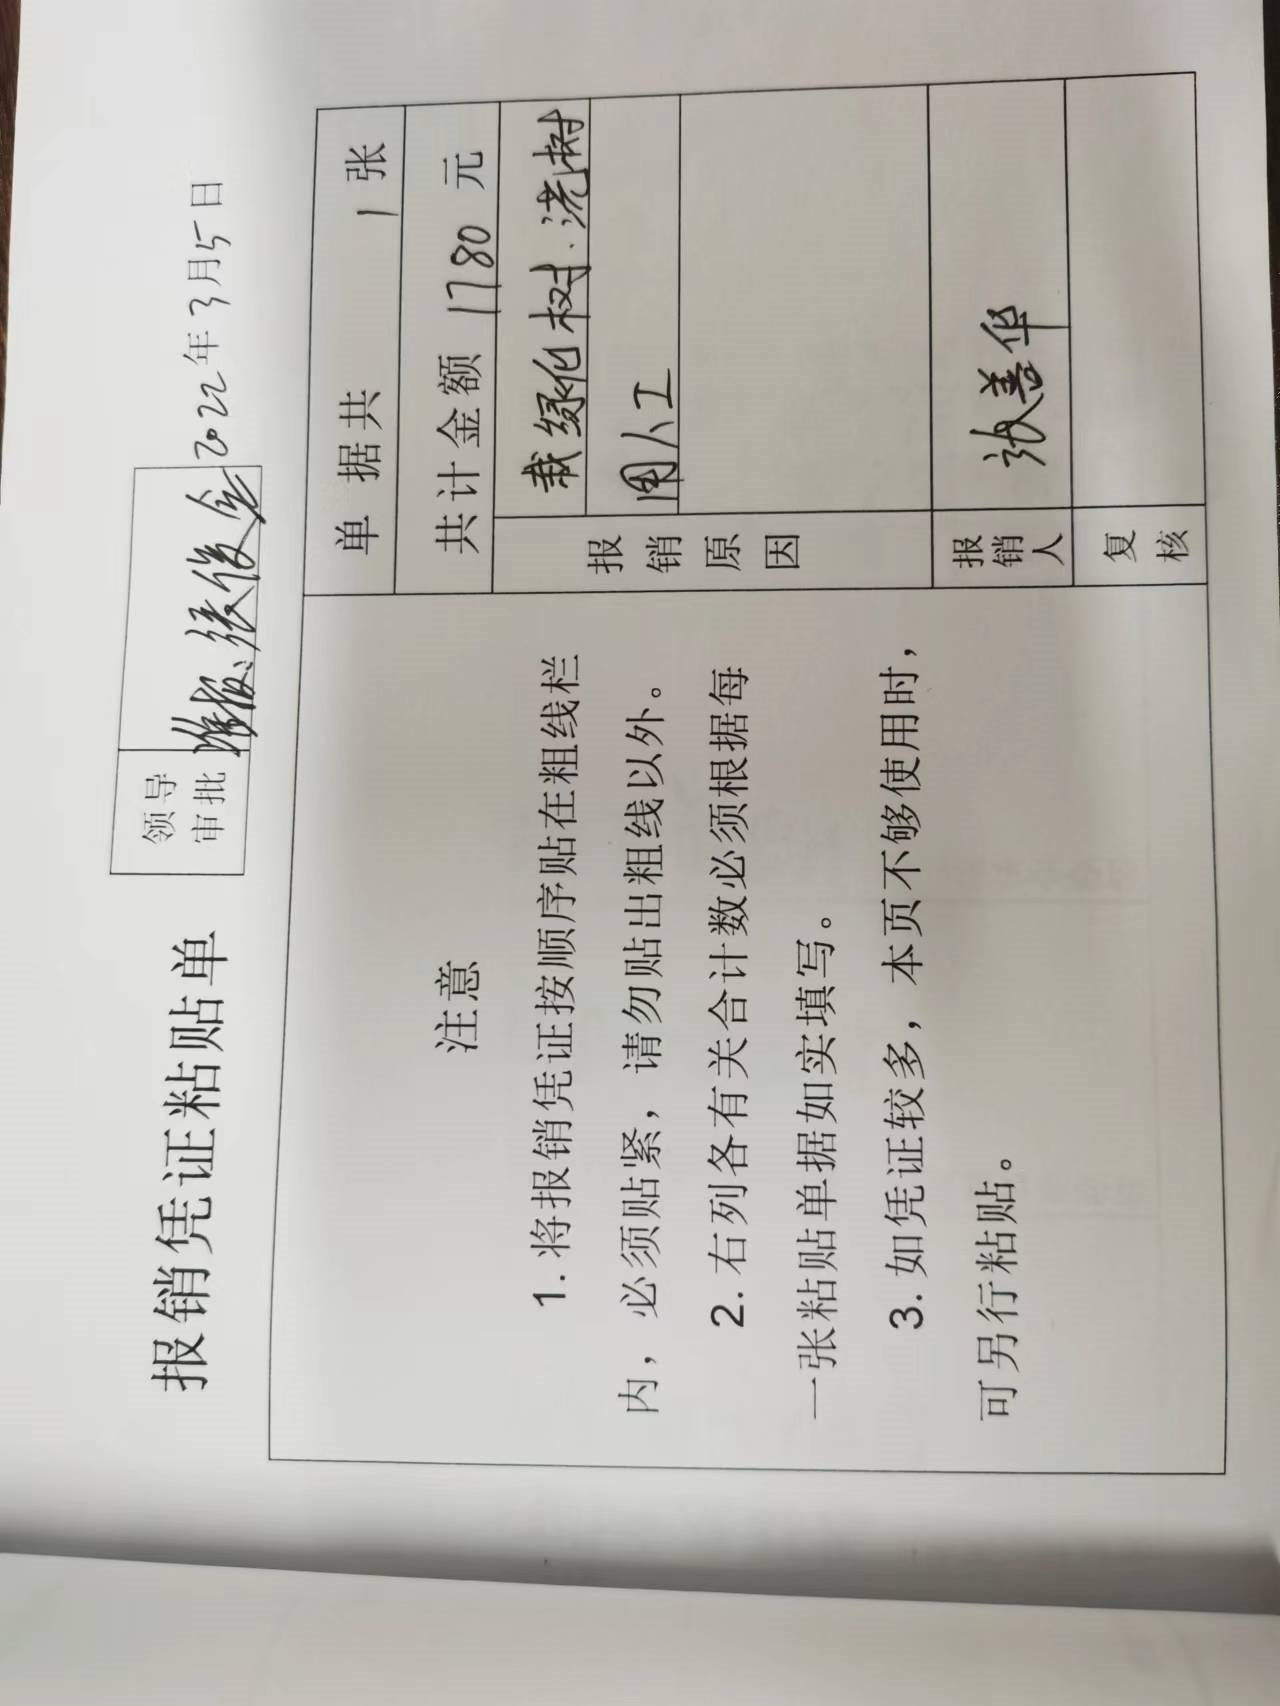 报销凭证粘贴单
领导
审批
张俊金
2022年3月5日
注意
1. 将报销凭证按顺序贴在粗线栏
内，必须贴紧，请勿贴出粗线以外。
2. 右列各有关合计数必须根据每
一张粘贴单据如实填写。
3. 如凭证较多，本页不够使用时，
可另行粘贴。
单据共 1 张
共计金额 1780 元
报销原因
栽绿化树．浇树
用人工
报销人
张善华
复核